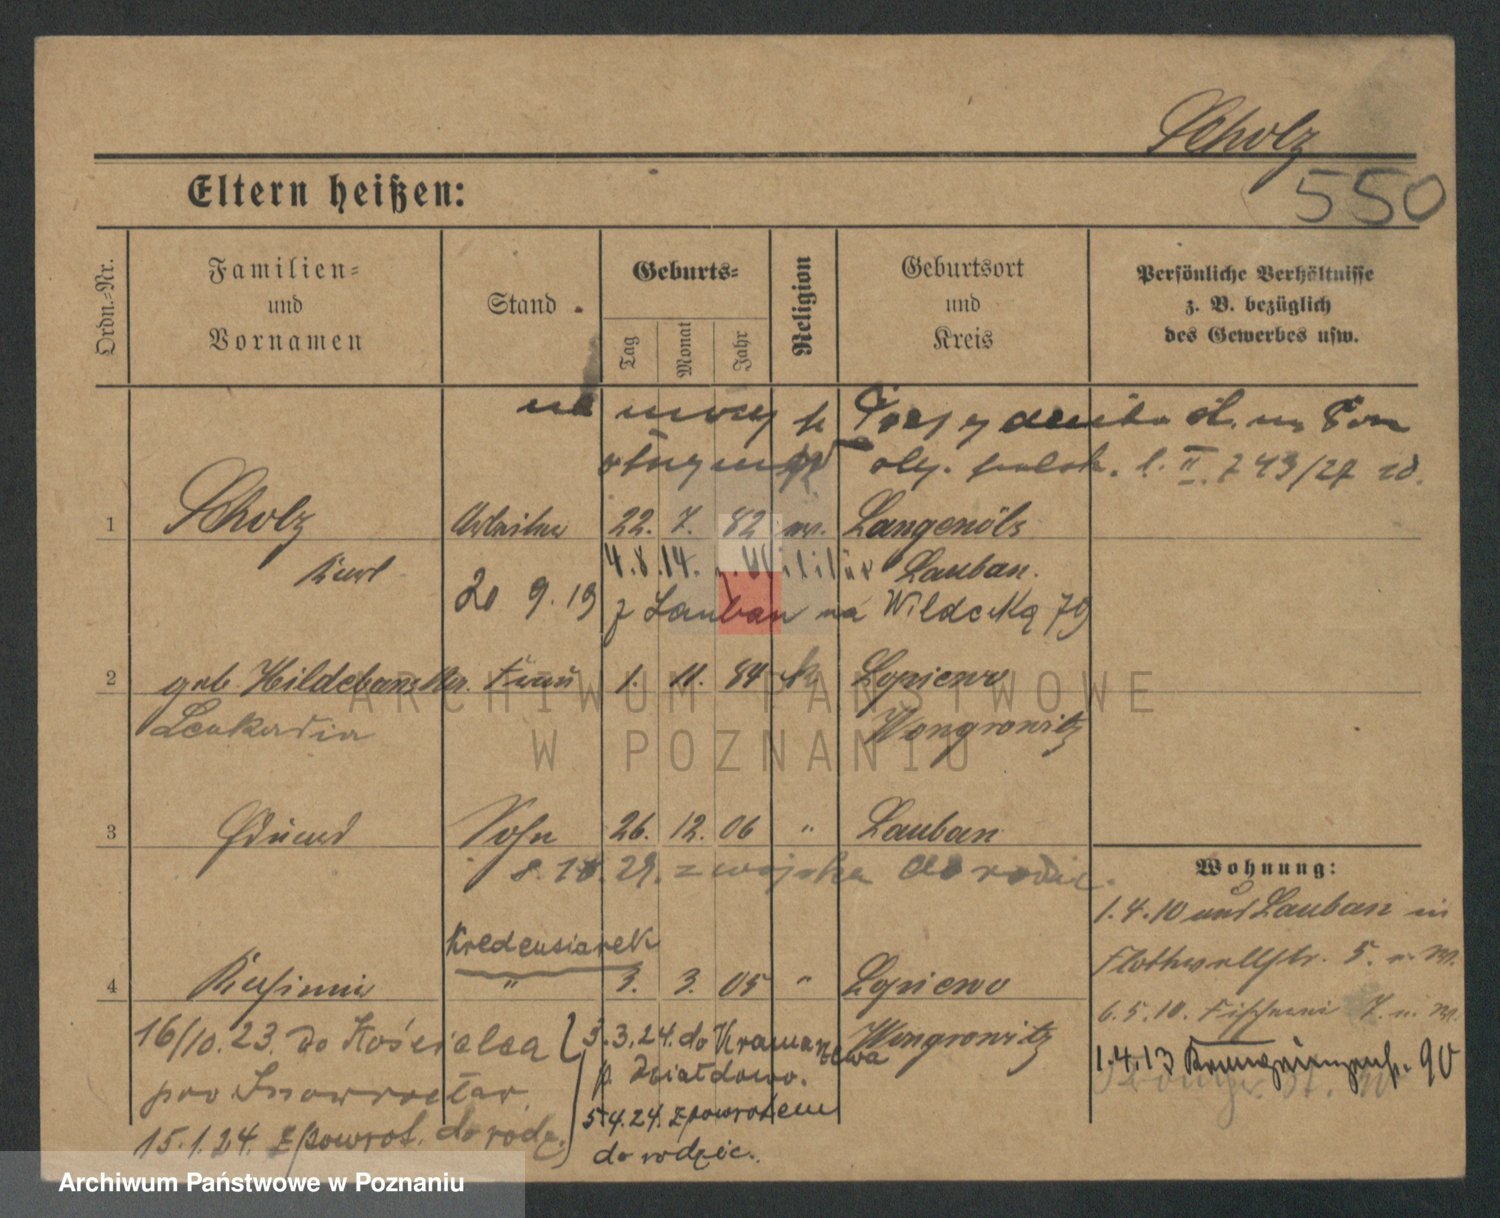 Scholz
550
Eltern heißen:
Ordn.=Nr.
Familien=
und
Vornamen
Stand
Geburts=
Tag
Monat
Jahr
Religion
Geburtsort
und
Kreis
Persönliche Verhältnisse
z. B. bezüglich
des Gewerbes usw.
na mocy
oby. polsk. l. II. 743/27
1 Scholz Arbeiter 22. 7. 82 Langenöls
4.8.14. z. Militär Lauban.
Karl
20 9.19 z Lauban na Wildecką 79
2 geb. Frau 1. 11. 84 k Lopienno
Leukadia Wongrowitz
3 Eduard Sohn 26. 12. 06 " Lauban
29. z wojska do rodzic.
Wohnung:
1.4.10 aus Lauban in
Flottwellstr. 5.
6.5.10. 7.
1.4.13 90
Kredensiarek
4 Kasimir " 3. 3. 05 " Lopienno
Wongrowitz
16/10.23. do Kościelca
pow Inowrocław
15.1.24. z powrot. do rodz.
3.3.24. do
p. Działdowo.
5.4.24. z powrotem
do rodzic.
ARCHIWUM PAŃSTWOWE
W POZNANIU
Archiwum Państwowe w Poznaniu